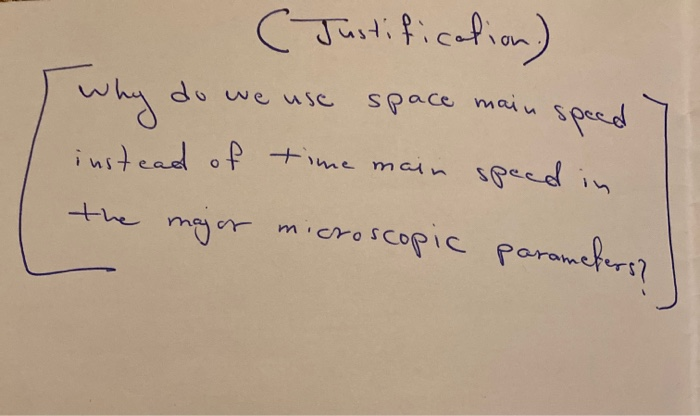 (Justification)
Why do we use space main speed
instead of time main speed in
the major microscopic parameters?